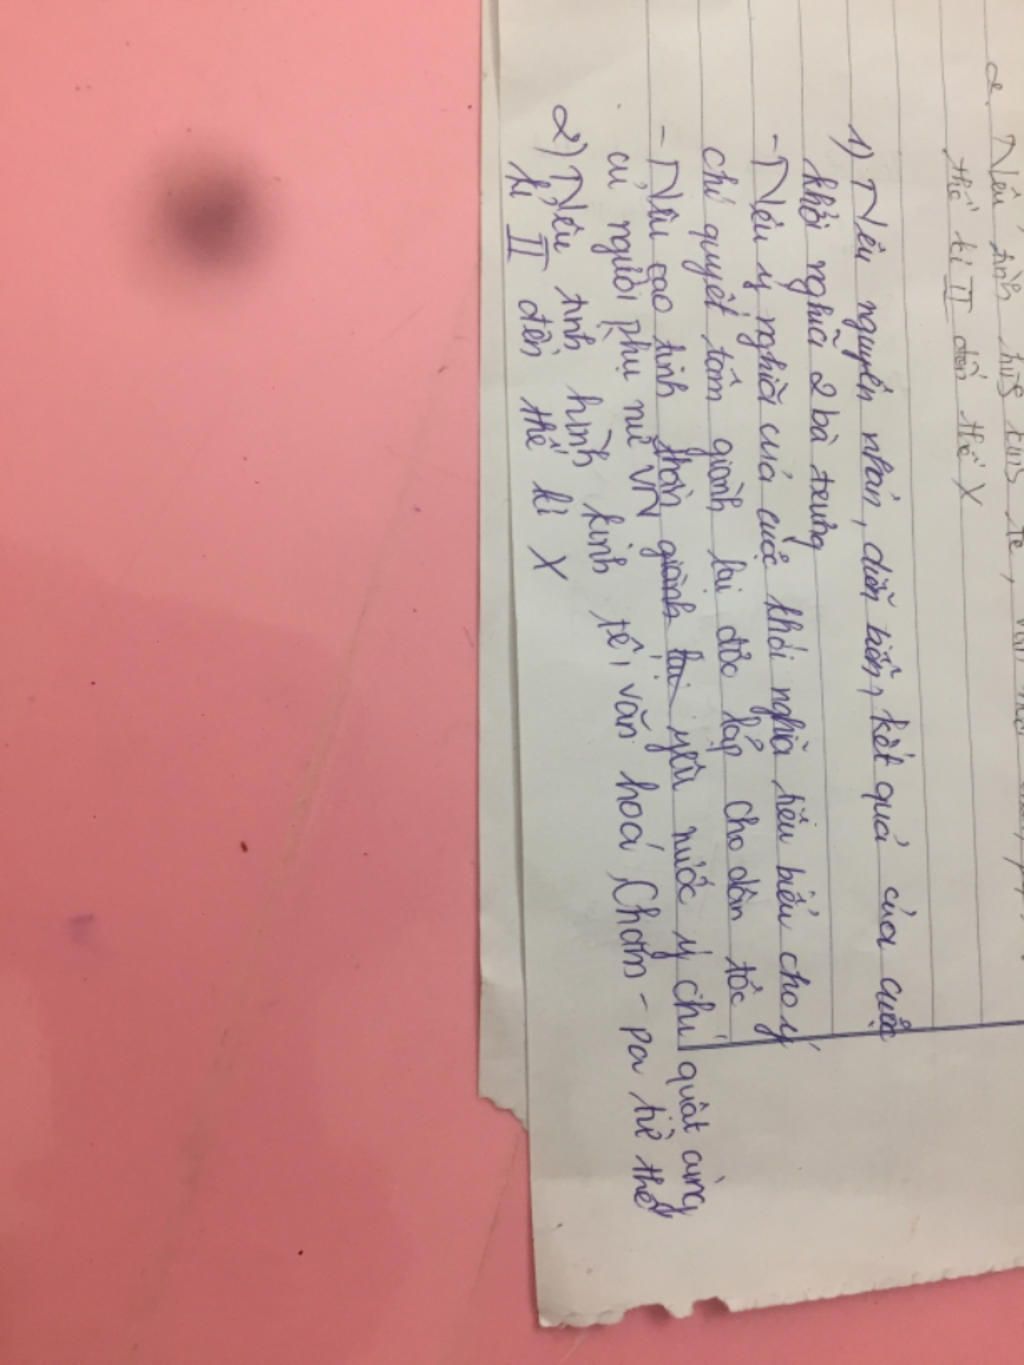 2. Nêu tình hình kinh tế, văn
thế kỉ II đến thế X
1) Nêu nguyên nhân, diễn biến, kết quả của cuộc
khởi nghĩa 2 bà trưng
- Nêu ý nghĩa của cuộc khởi nghĩa tiêu biểu cho ý
chí quyết tâm giành lại độc lập cho dân tộc
- Nêu cao tinh thần giành lại yêu nước ý chí quât cừng
củ người phụ nữ VN
2) Nêu tình hình kinh tế, văn hoá Chăm - pa từ thế
kỉ II đến thế kỉ X